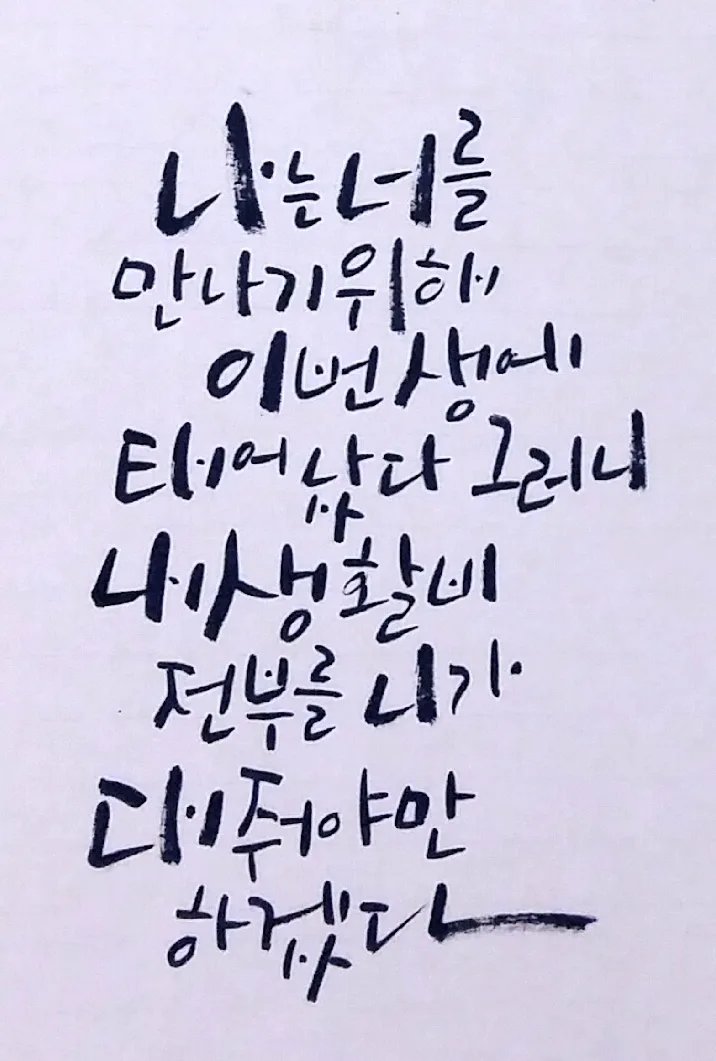 나는 너를
만나기위해
이번 생에
태어났다 그러니
내 생활비
전부를 니가
대줘야만
하겠다